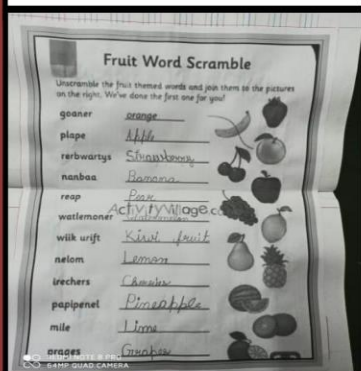 Fruit Word Scramble
Unscramble the fruit themed words and join them to the pictures
on the right. We've done the first one for you!
goaner orange
plape Apple
rerbwartys Strawberry
nanbaa Banana
reap Pear
ActivityVillage.c
watlemoner
wiik urift Kiwi fruit
nelom Lemon
irechers Cherries
paplpenel Pineapple
mile Lime
prages Grapes
REDMI NOTE 8 PRO
64MP QUAD CAMERA